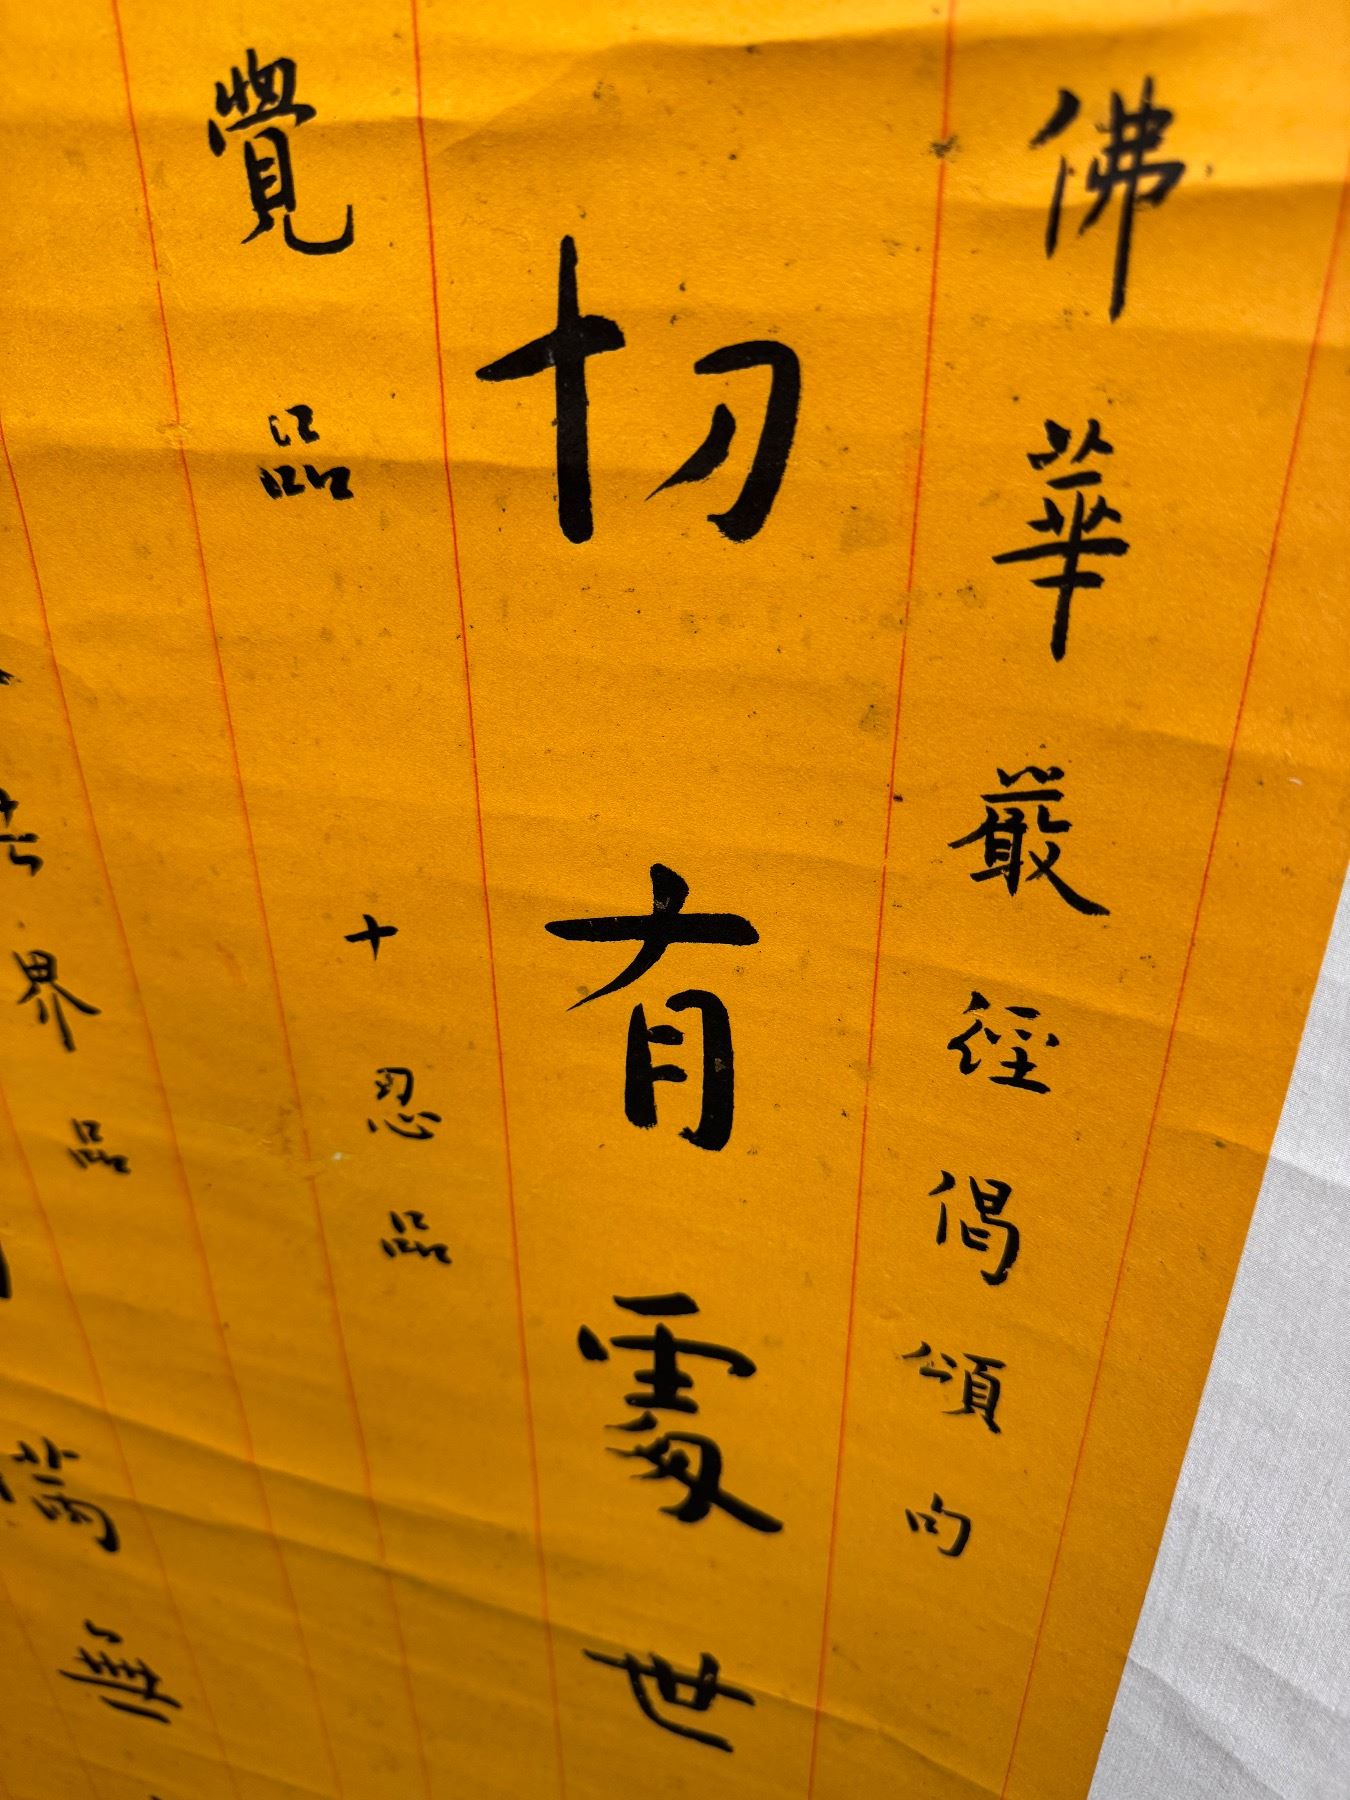 佛華嚴經偈頌句
切有處世
十忍品
覺品
界品
無